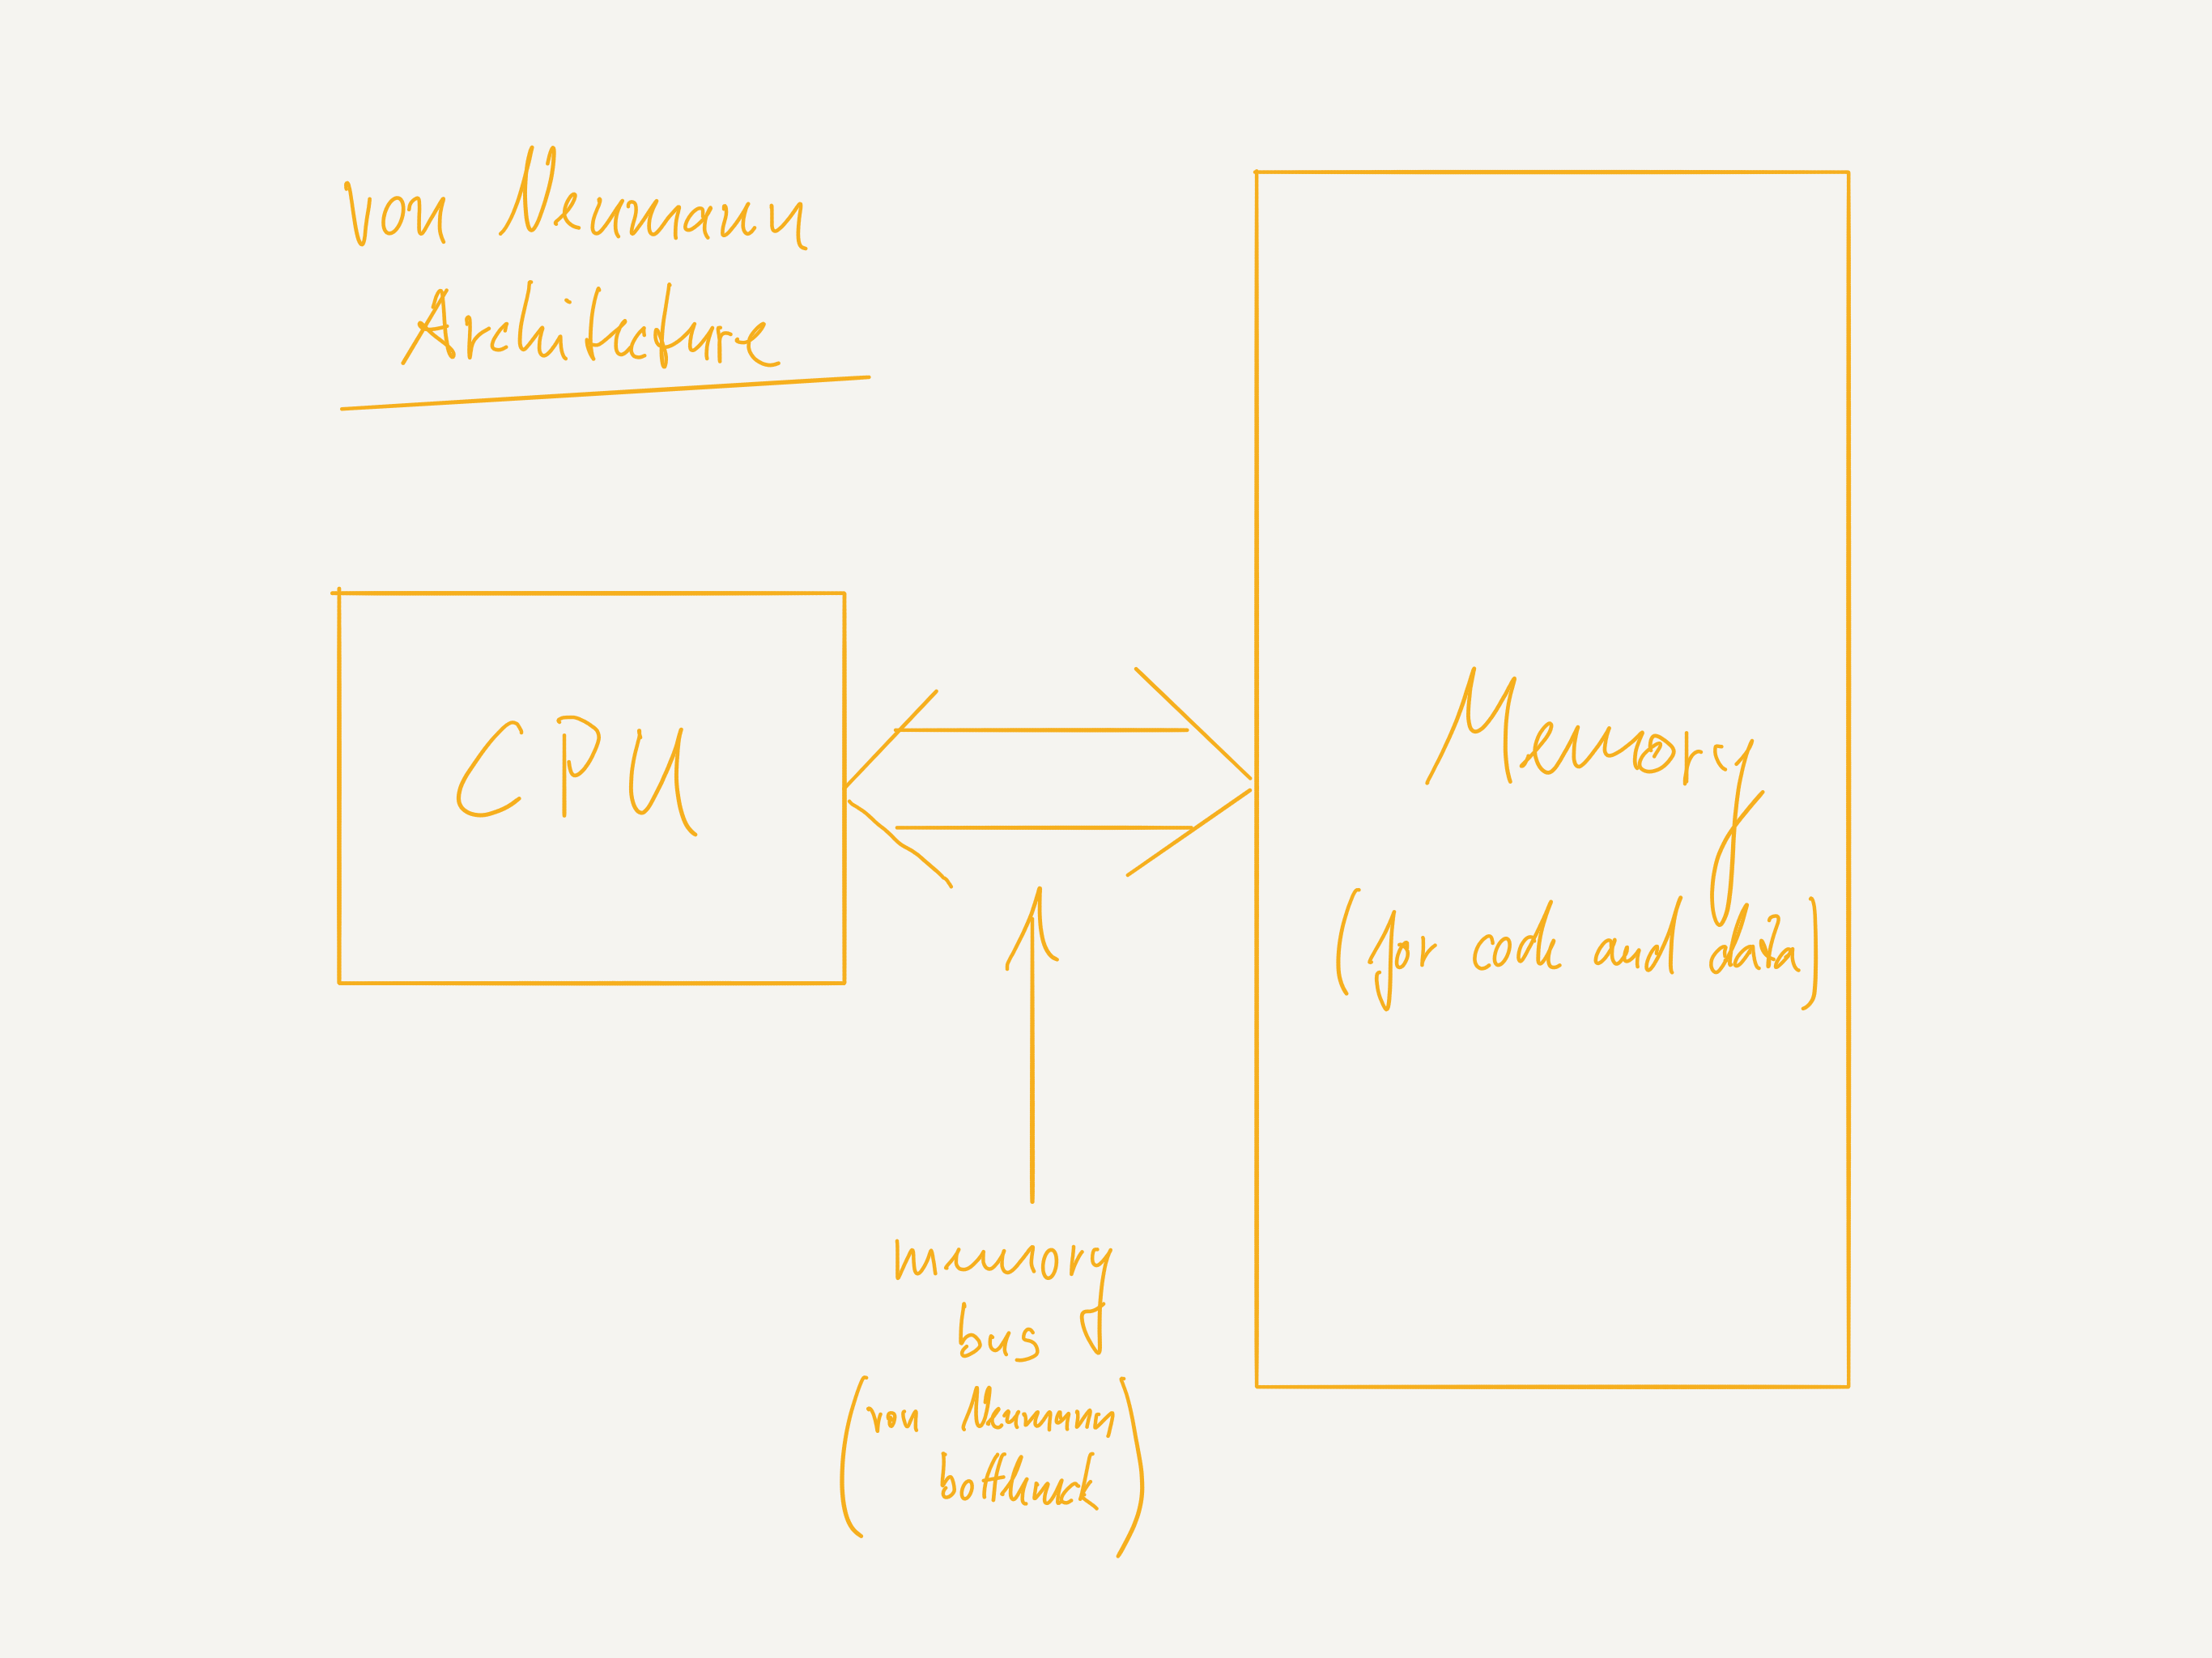 von Neumann
Architecture
CPU
Memory
(for code and data)
memory
bus
(von Neumann
bottleneck)